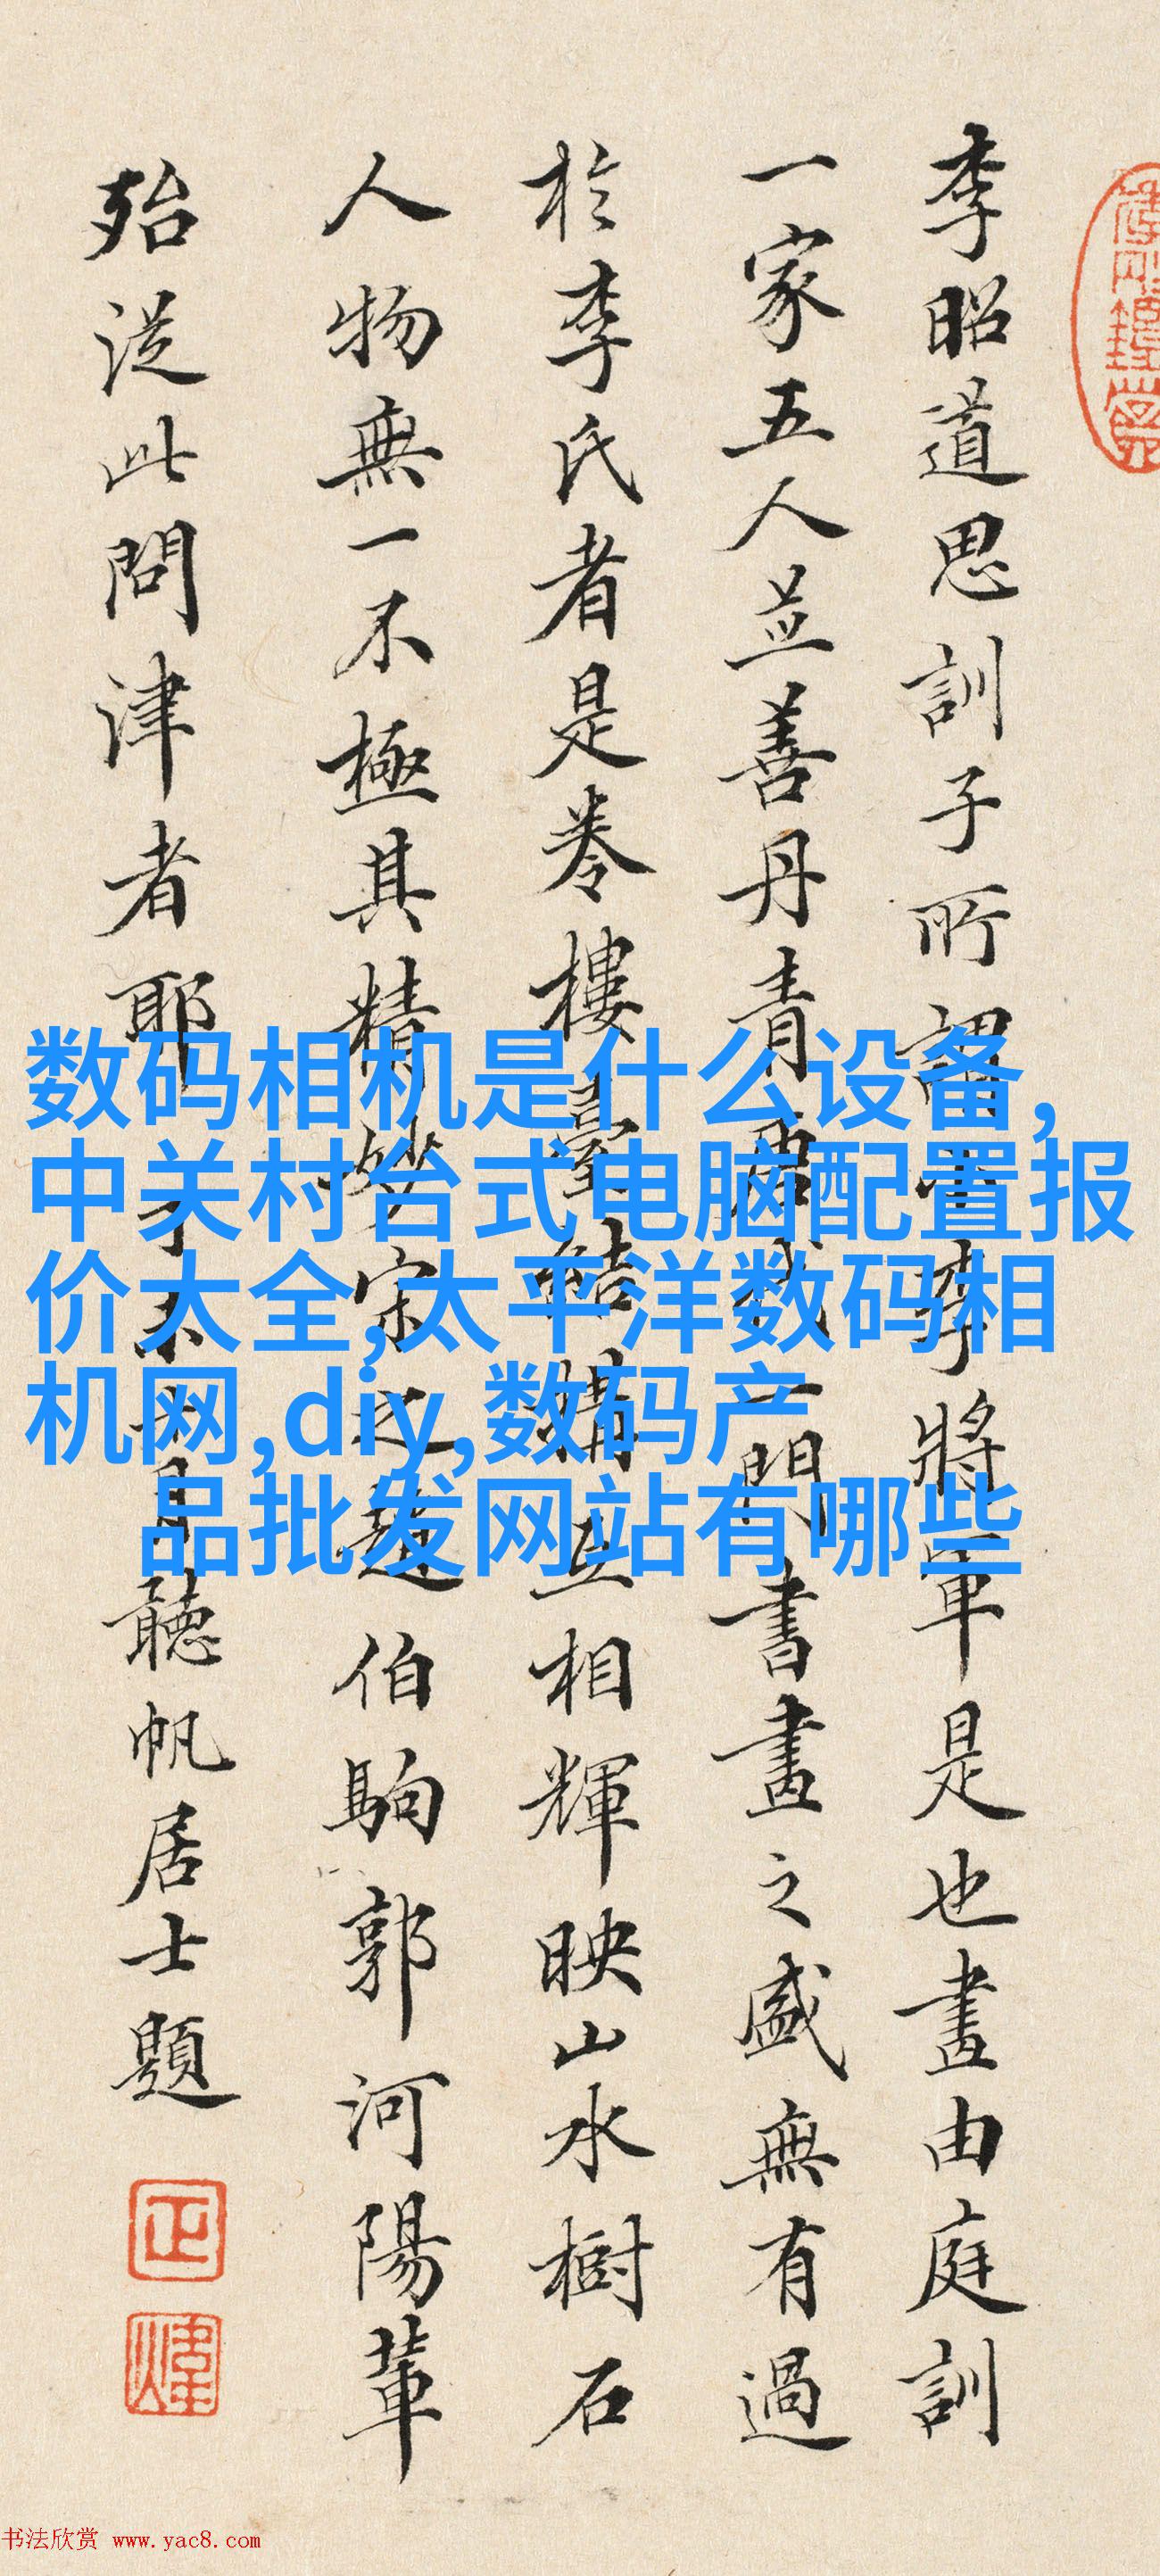 李昭道思訓子所謂小李將軍是也畫由庭訓
一家五人並善丹青一門書畫之盛無有過
於李氏者是卷樓臺結構互相輝映山水樹石
人物無一不極其精妙宋之趙伯駒郭河陽輩
殆從此問津者耶丁未七月聽帆居士題
正
煒
数码相机是什么设备,
中关村台式电脑配置报
价大全,太平洋数码相
机网,diy,数码产
品批发网站有哪些
书法欣赏 www.yac8.com